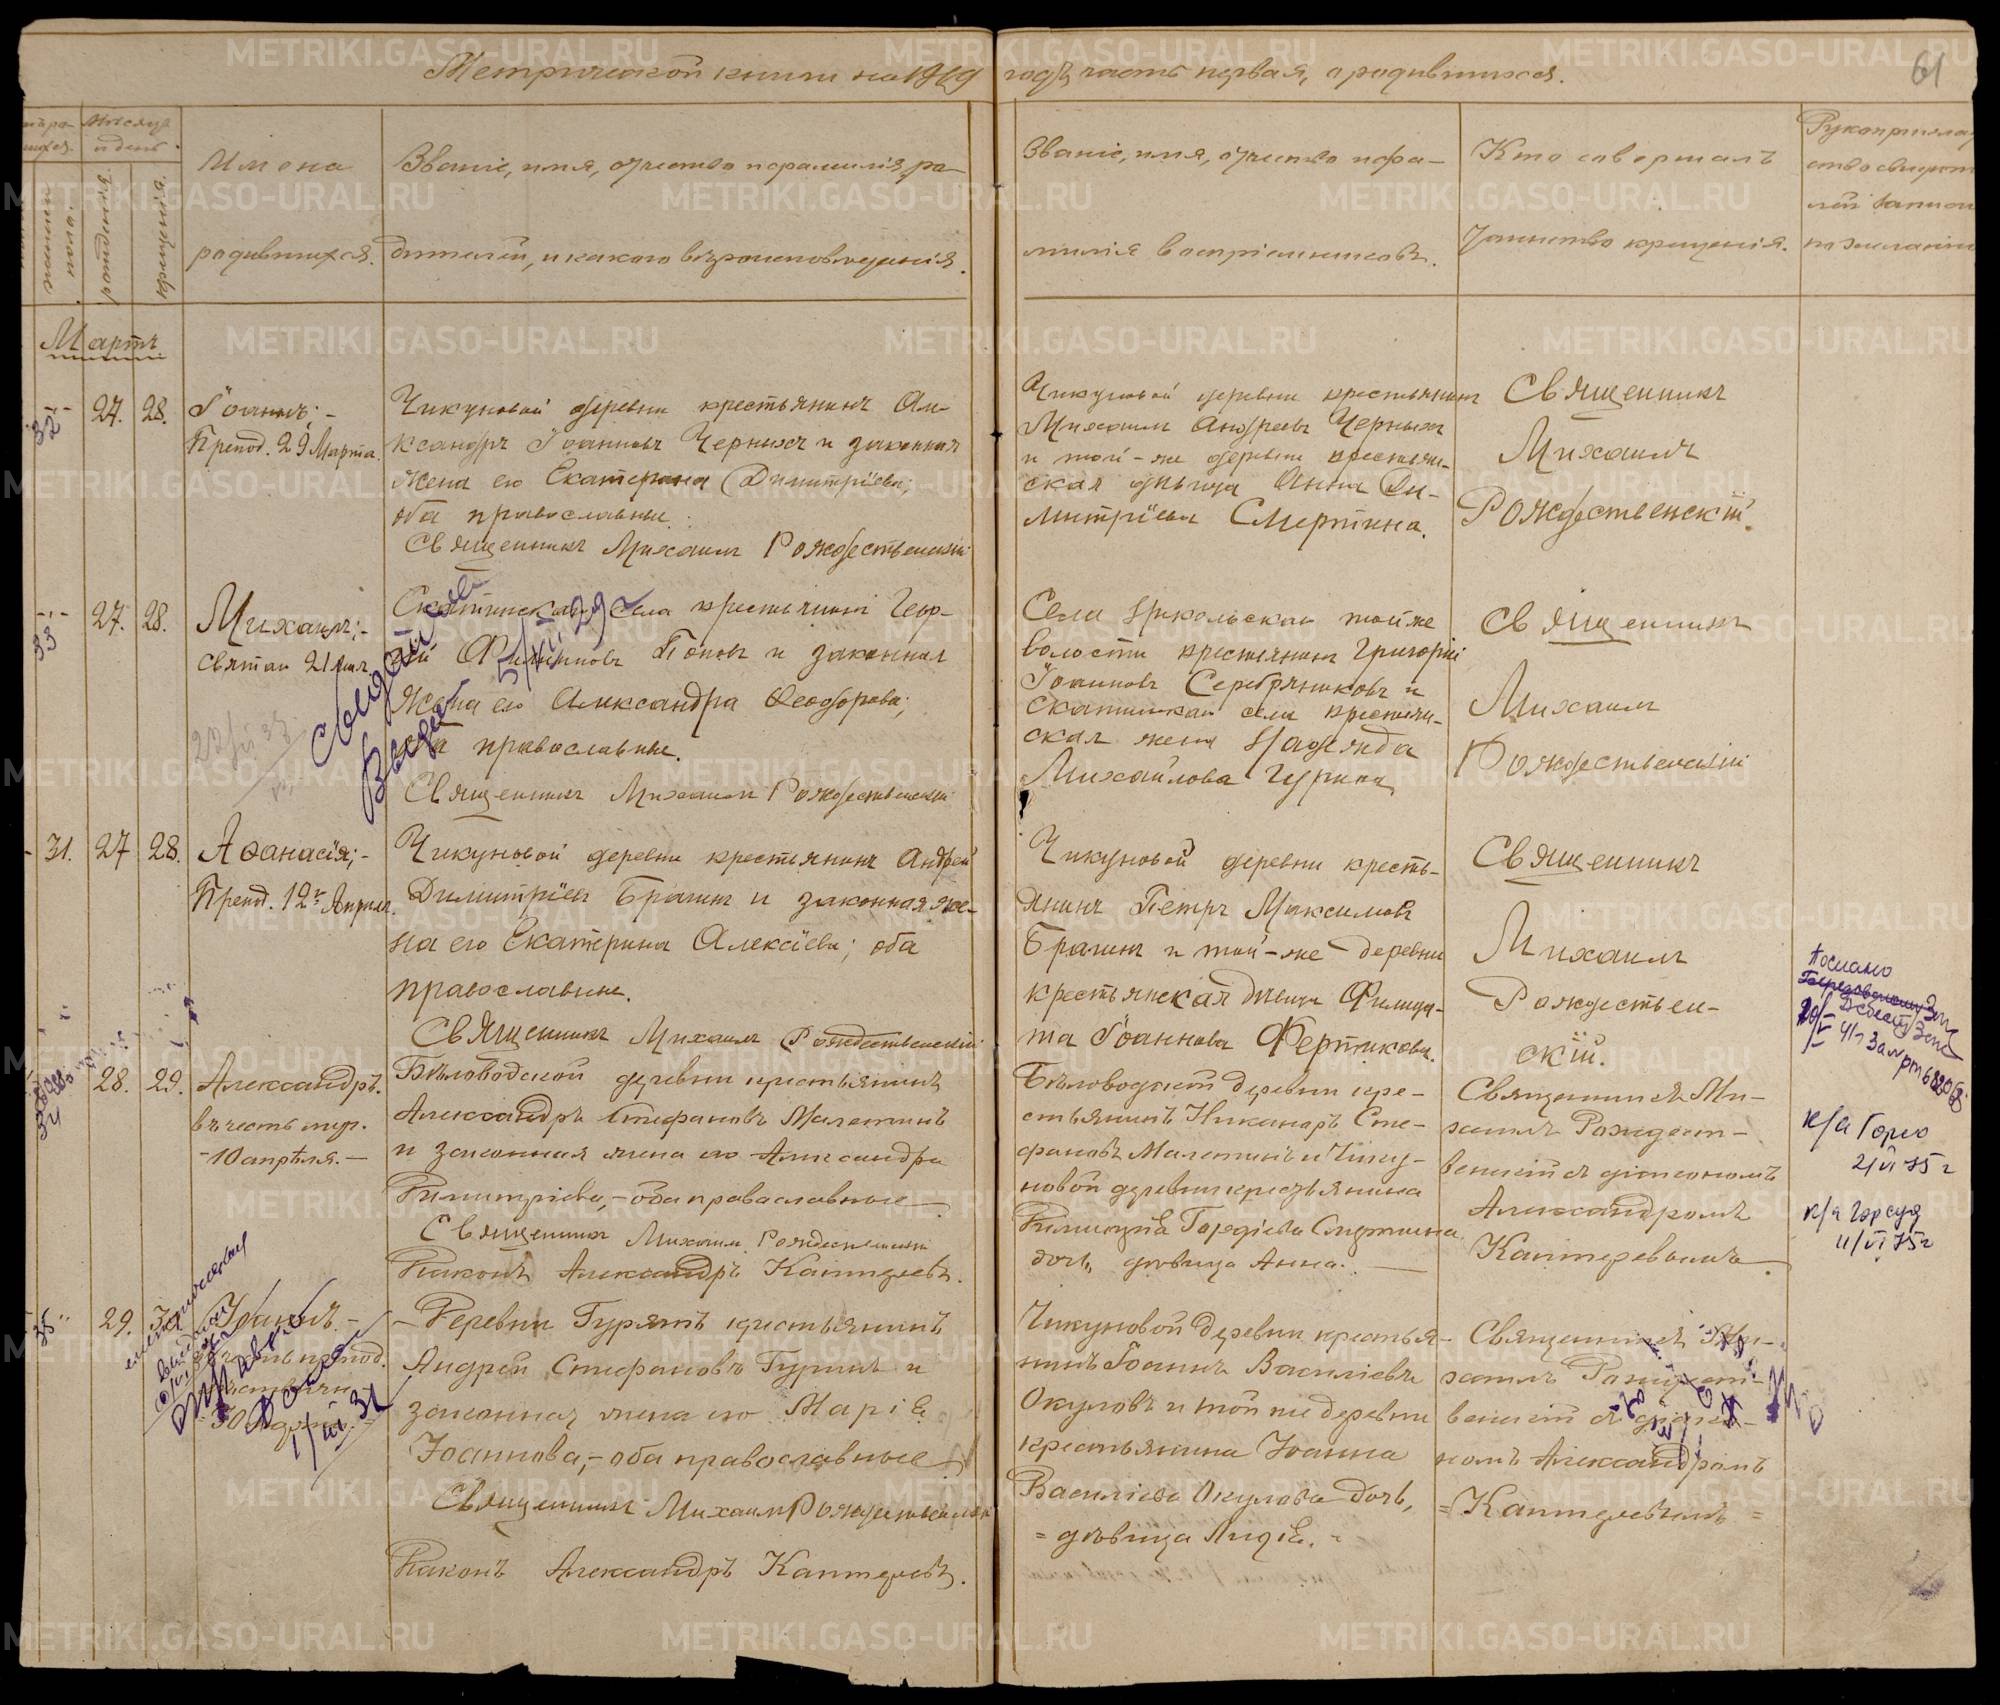 Метрической книги на 1919 годъ часть первая, о родившихся.
61
Мѣсяцъ
и день.
женскаго
пола.
рожденія.
крещенія.
Имена
родившихся.
Званіе, имя, отчество и фамилія ро-
дителей, и какого вѣроисповѣданія.
Званіе, имя, отчество и фа-
милія воспріемниковъ.
Кто совершалъ
таинство крещенія.
Рукоприклад
ство свидѣт
лей записи
по желанію
Мартъ
32
27. 28.
Іоаннъ;-
Препод. 29 Марта.
Чикуновой деревни крестьянинъ Але-
ксандръ Іоанновъ Черныхъ и законная
жена его Екатерина Димитріева;
оба православные.
Священникъ Михаилъ Рождественскій
Чикуновой деревни крестьянинъ
Михаилъ Андреевъ Черныхъ
и той-же деревни крестьян-
ская дѣвица Анна Ди-
митріева Смертина.
Священникъ
Михаилъ
Рождественскій.
33
27. 28.
Михаилъ;-
святаго 21 мая
Скатинскаго села крестьянинъ Геор-
гій Филипповъ Поповъ и законная
жена его Александра Феодорова;
оба православные.
Священникъ Михаилъ Рождественскій
Села Никольскаго той же
волости крестьянинъ Григорій
Іоанновъ Серебряниковъ и
Скатинскаго села крестьян-
ская жена Надежда
Михайлова Гурина
Священникъ
Михаилъ
Рождественскій
31. 27 28.
Аѳанасія;-
Препод. 12го Апреля.
Чикуновой деревни крестьянинъ Андрей
Димитріевъ Брагинъ и законная же-
на его Екатерина Алексіева; оба
православные.
Священникъ Михаилъ Рождественскій
Чикуновой деревни кресть-
янинъ Петръ Максимовъ
Брагинъ и той-же деревни
крестьянская дѣвица Филица-
та Іоаннова Фертикова.
Священникъ
Михаилъ
Рождествен-
скій.
34
28. 29.
Александръ.
въ честь муч.
-10 апрѣля.-
Бѣловодской деревни крестьянинъ
Александръ Стефановъ Малетинъ
и законная жена его Александра
Димитріева,-оба православные.
Священникъ Михаилъ Рождественскій
Діаконъ Александръ Каптеревъ.
Бѣловодской деревни кре-
стьянинъ Никаноръ Сте-
фановъ Малетинъ и Чику-
новой деревни крестьянина
Димитрія Гордіева Смертина
дочь, дѣвица Анна.
Священникъ Ми-
хаилъ Рождест-
венскій съ діакономъ
Александромъ
Каптеревымъ.
Послано
к/а Горсо
2/VI 75 г
к/а Горсуд
11/VI 75 г
35
29. 30
Деревни Гурятъ крестьянинъ
Андрей Стефановъ Гуринъ и
законная жена его Марія
Іоаннова,-оба православные.
Священникъ Михаилъ Рождественскій
Діаконъ Александръ Каптеревъ.
1/III 31
Чикуновой деревни крестья-
нинъ Іоаннъ Василіевъ
Окуловъ и той же деревни
крестьянина Іоанна
Василіева Окулова дочь,
= дѣвица Лидія. =
Священникъ Ми-
хаилъ Рождест-
венскій съ діако-
номъ Александромъ
=Каптеревымъ=